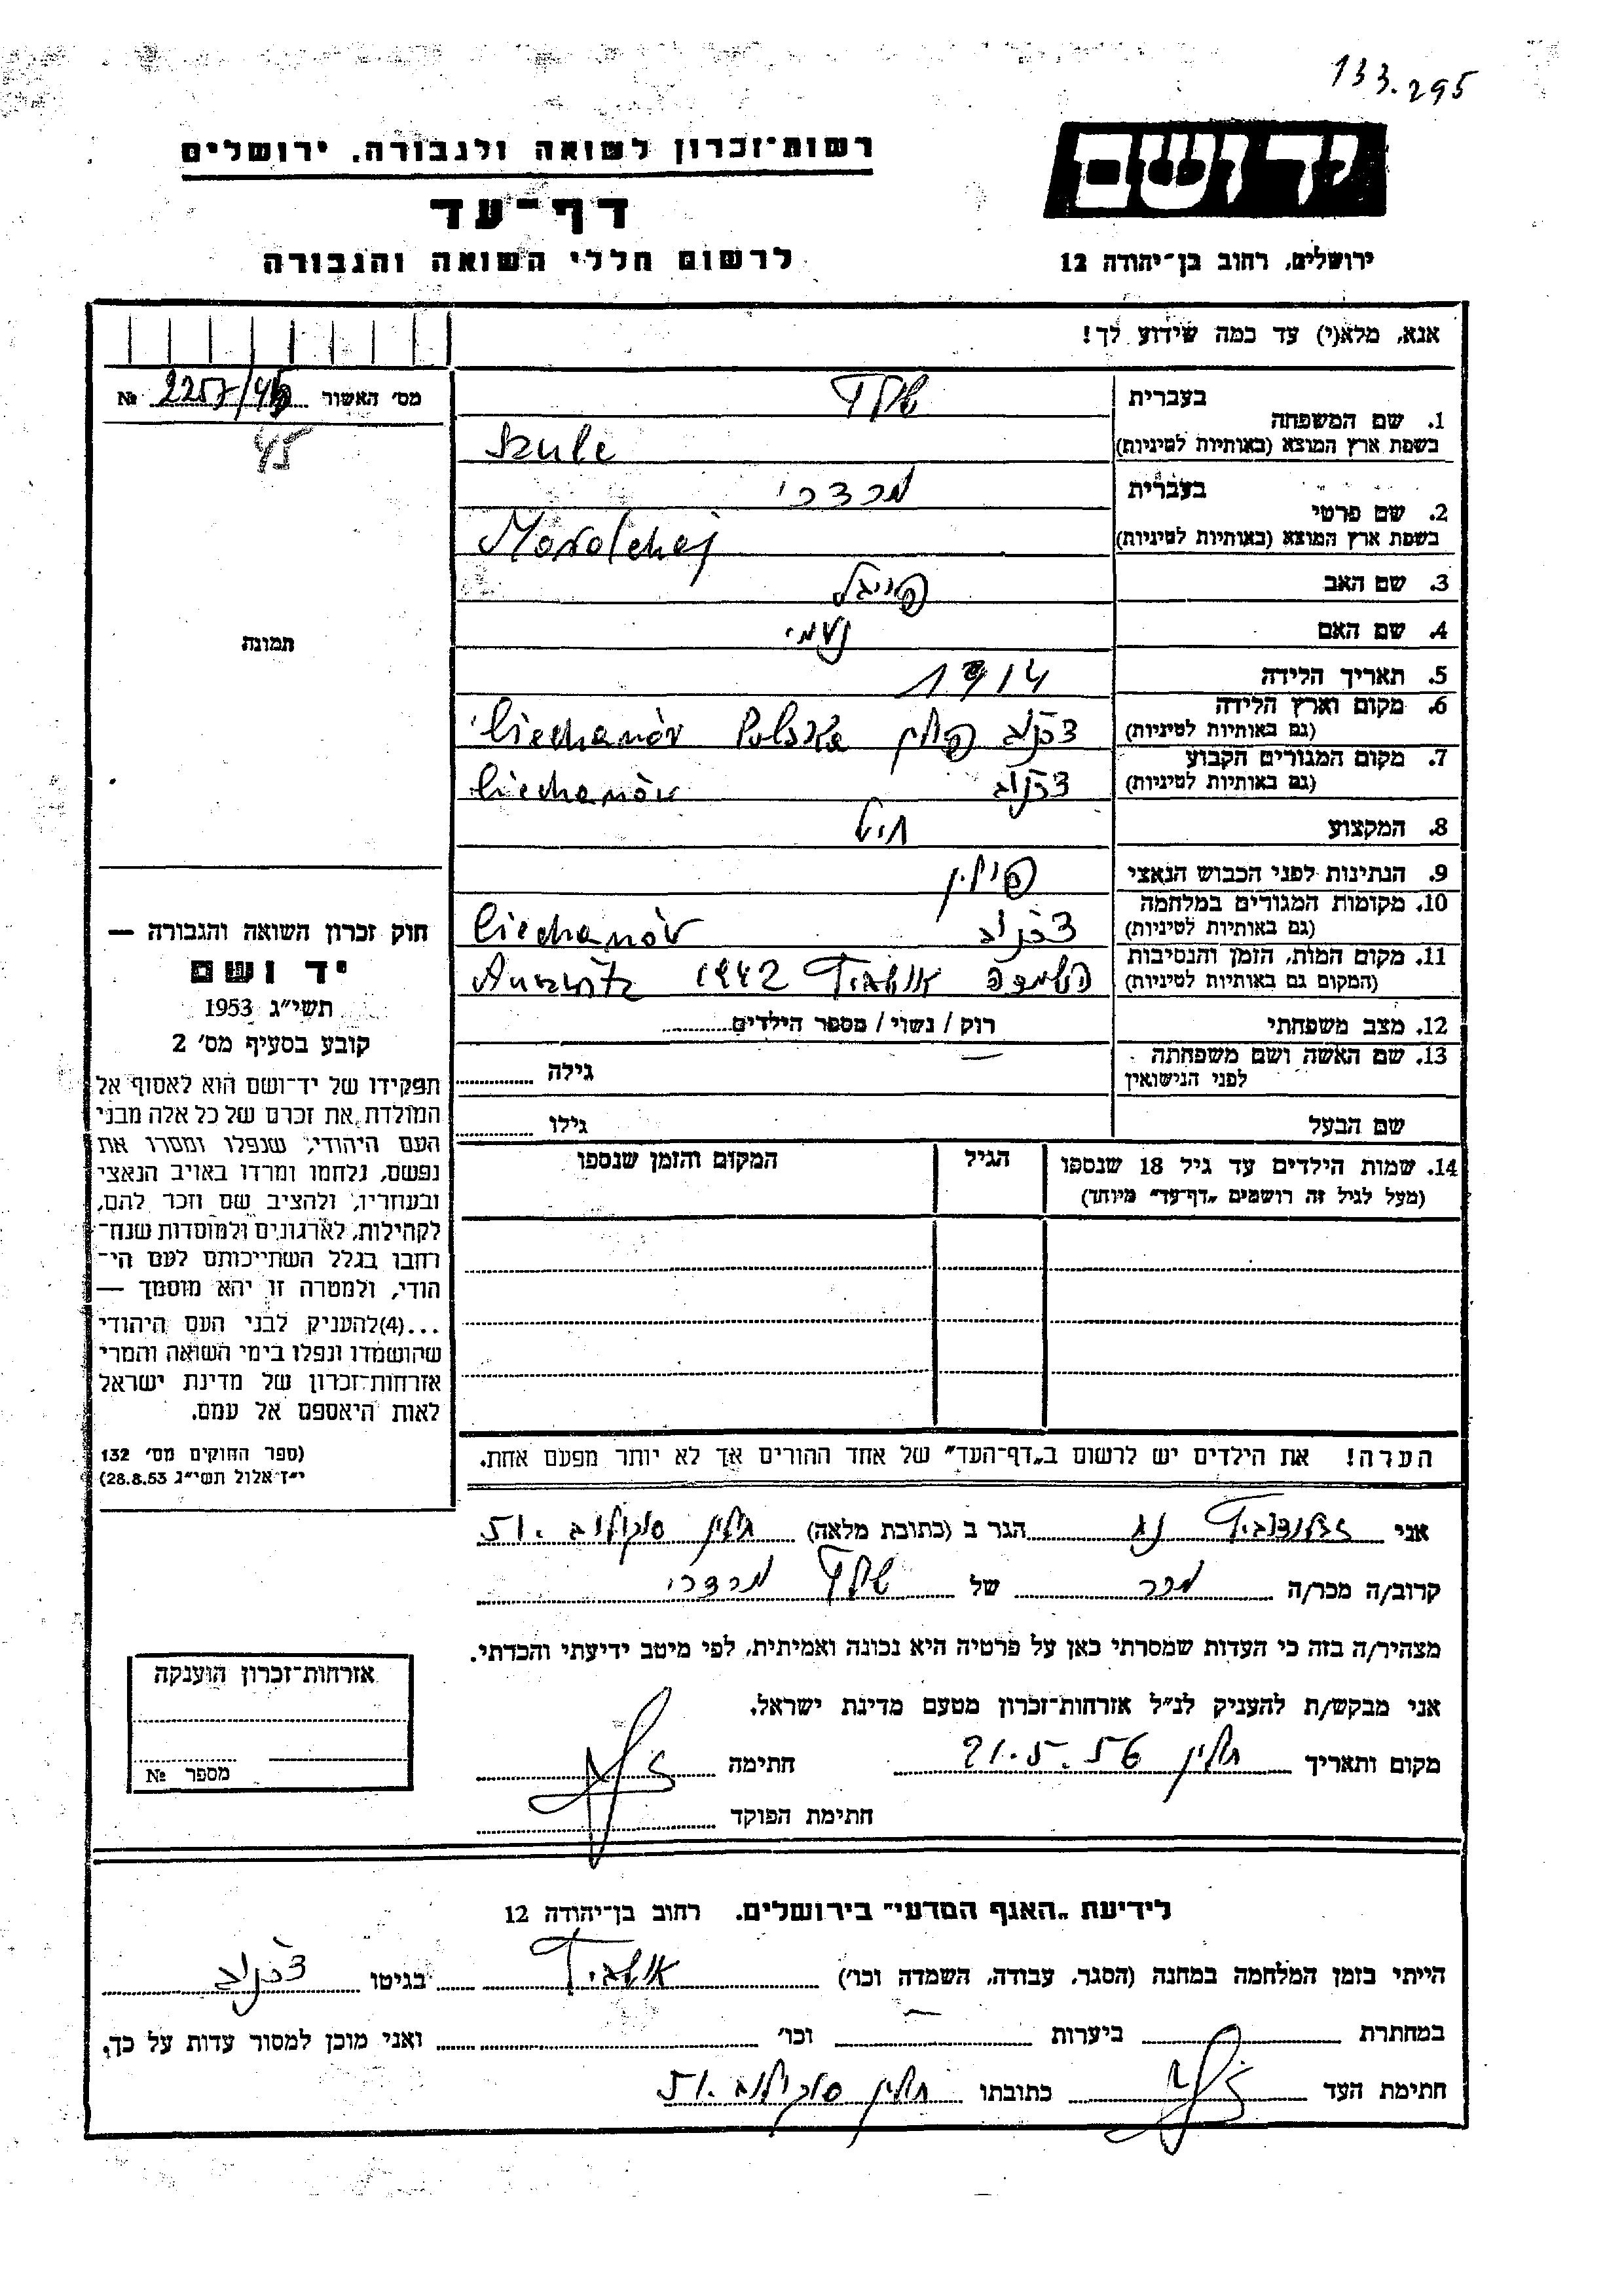 133.295
יד ושם
רשות־זכרון לשואה ולגבורה, ירושלים
דף־עד
לרשום חללי השואה והגבורה
ירושלים, רחוב בן־יהודה 12
אנא, מלא(י) עד כמה שידוע לך!
מס׳ האשור 2257/45 №
45
תמונה
1. שם המשפחה
בעברית שולץ
בשפת ארץ המוצא (באותיות לטיניות) Szulc
2. שם פרטי
בעברית מרדכי
בשפת ארץ המוצא (באותיות לטיניות) Mordchaj
3. שם האב פייבל
4. שם האם נעמי
5. תאריך הלידה 1914
6. מקום וארץ הלידה צכנוב פולין Polska Ciechanów
(גם באותיות לטיניות)
7. מקום המגורים הקבוע צכנוב Ciechanów
(גם באותיות לטיניות)
8. המקצוע חיט
9. הנתינות לפני הכבוש הנאצי פולין
10. מקומות המגורים במלחמה צכנוב Ciechanów
(גם באותיות לטיניות)
11. מקום המות, הזמן והנסיבות השמדה אושביץ 1942
(המקום גם באותיות לטיניות)
12. מצב משפחתי רוק / נשוי / מספר הילדים
13. שם האשה ושם משפחתה גילה
לפני הנישואין
שם הבעל גילו
14. שמות הילדים עד גיל 18 שנספו הגיל המקום והזמן שנספו
(מעל לגיל זה רושמים „דף־עד״ מיוחד)
הערה! את הילדים יש לרשום ב„דף־העד״ של אחד ההורים אך לא יותר מפעם אחת.
חוק זכרון השואה והגבורה —
יד ושם
תשי״ג 1953
קובע בסעיף מס׳ 2
תפקידו של יד־ושם הוא לאסוף אל
המולדת את זכרם של כל אלה מבני
העם היהודי, שנפלו ומסרו את
נפשם, נלחמו ומרדו באויב הנאצי
ובעוזריו, ולהציב שם וזכר להם,
לקהילות, לארגונים ולמוסדות שנח־
רחבו בגלל השתייכותם לעם הי־
הודי, ולמטרה זו יהא מוסמך —
...(4)להעניק לבני העם היהודי
שהושמדו ונפלו בימי השואה והמרי
אזרחות־זכרון של מדינת ישראל
לאות היאספם אל עמם.
(ספר החוקים מס׳ 132
י״ז אלול תשי״ג 28.8.53)
אני הגר ב (כתובת מלאה) חולון סוקולוב 51.
קרוב/ה מכר/ה מכר של שולץ מרדכי
מצהיר/ה בזה כי העדות שמסרתי כאן על פרטיה היא נכונה ואמיתית, לפי מיטב ידיעתי והכרתי.
אני מבקש/ת להעניק לנ״ל אזרחות־זכרון מטעם מדינת ישראל.
מקום ותאריך חולון 21.5.56 חתימה
חתימת הפוקד
אזרחות־זכרון הוענקה
מספר №
לידיעת „האגף המדעי״ בירושלים. רחוב בן־יהודה 12
הייתי בזמן המלחמה במחנה (הסגר, עבודה, השמדה וכו׳) אושביץ בגיטו צכנוב
במחתרת ביערות וכו׳ ואני מוכן למסור עדות על כך.
חתימת העד כתובתו חולון סוקולוב 51.